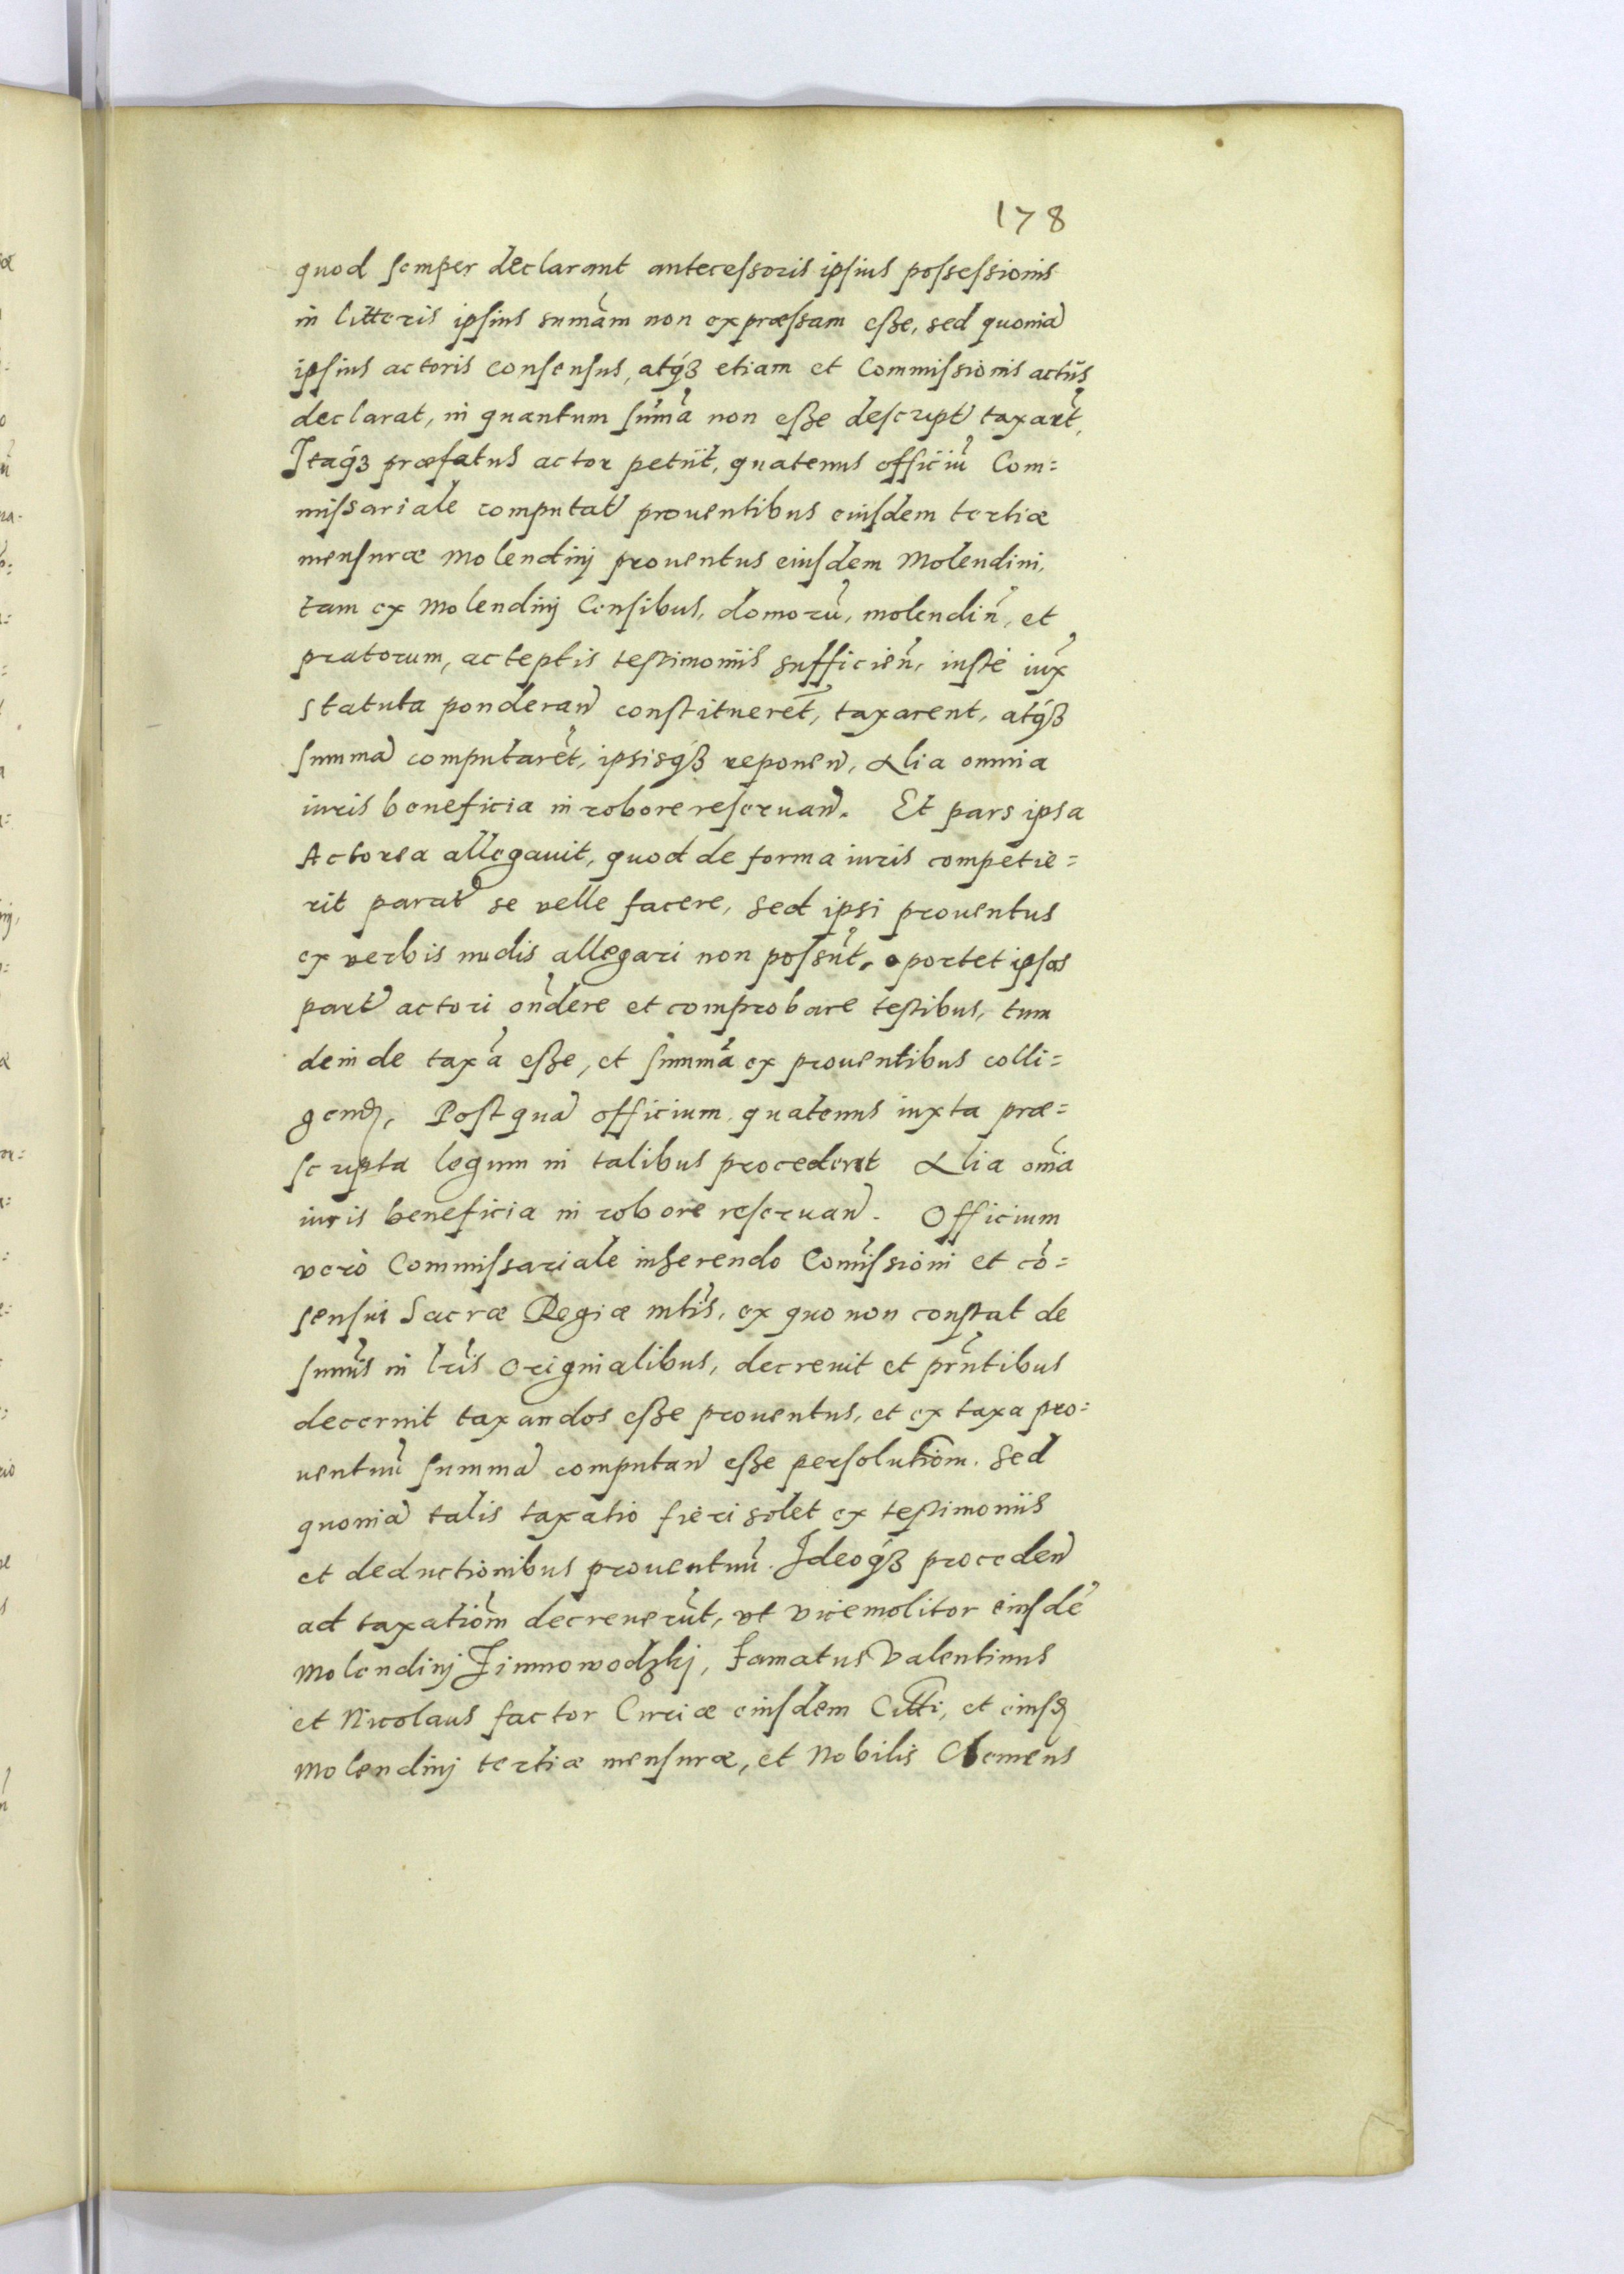 178
quod semper declarant antecessoris ipsius possessionis
in litteris ipsius sumãm non expræssam esse, sed quoniã
ipsius actoris consensus, atq́ꝫ etiam et Commissionis actus
declarat, in quantum sum̃a non esse descript̃ taxar̃t,
Itaq́ꝫ præfatus actor petiit, quatenus officiũ Com=
missariale computat̃ prouentibus eiusdem tertiæ
mensuræ Molendinj prouentus eiusdem Molendini,
tam ex Molendinj Censibus, domorũ, molendiñ, et
pratorum, acceptis testimoniis sufficieñ, iustè iux̃
statuta ponderañ constituerẽt, taxarent, atq́ꝫ
summã computarẽt, ipsisq́ꝫ reponeñ, Alia omnia
iuris beneficia in robore reseruañ. Et pars ipsa
Actorea allegauit, quod de forma iuris competie=
rit parat̃ se velle facere, sed ipsi prouentus
ex verbis nudis allegari non possũt, oportet ipsos
part̃ actori oñdere et comprobare testibus, tum
deinde tax̃a esse, et summã ex prouentibus colli=
gend̃, Postquã officium quatenus iuxta præ=
scripta legum in talibus procederet Alia om̃ia
iuris beneficia in robore reseruañ. Officium
verò Commissariale inherendo Com̃issioni et cõ=
sensui Sacræ Regiæ mt̃is, ex quo non constat de
sum̃is in lr̃is Originalibus, decreuit et prñtibus
decernit taxandos esse prouentus, et ex taxa pro=
uentuũ summã computañ esse persolutiom̃. Sed
quoniã talis taxatio fieri solet ex testimoniis
et deductionibus prouentuũ. Ideoq́ꝫ procedeñ
ad taxatiom̃ decreuerũt, vt vicemolitor eiusdẽ
Molendinj Zimnowodzkj, famatus Valentinus
et Nicolaus factor Curiæ eiusdem Citti, et eiusd̃
Molendinj tertiæ mensuræ, et Nobilis Clemens